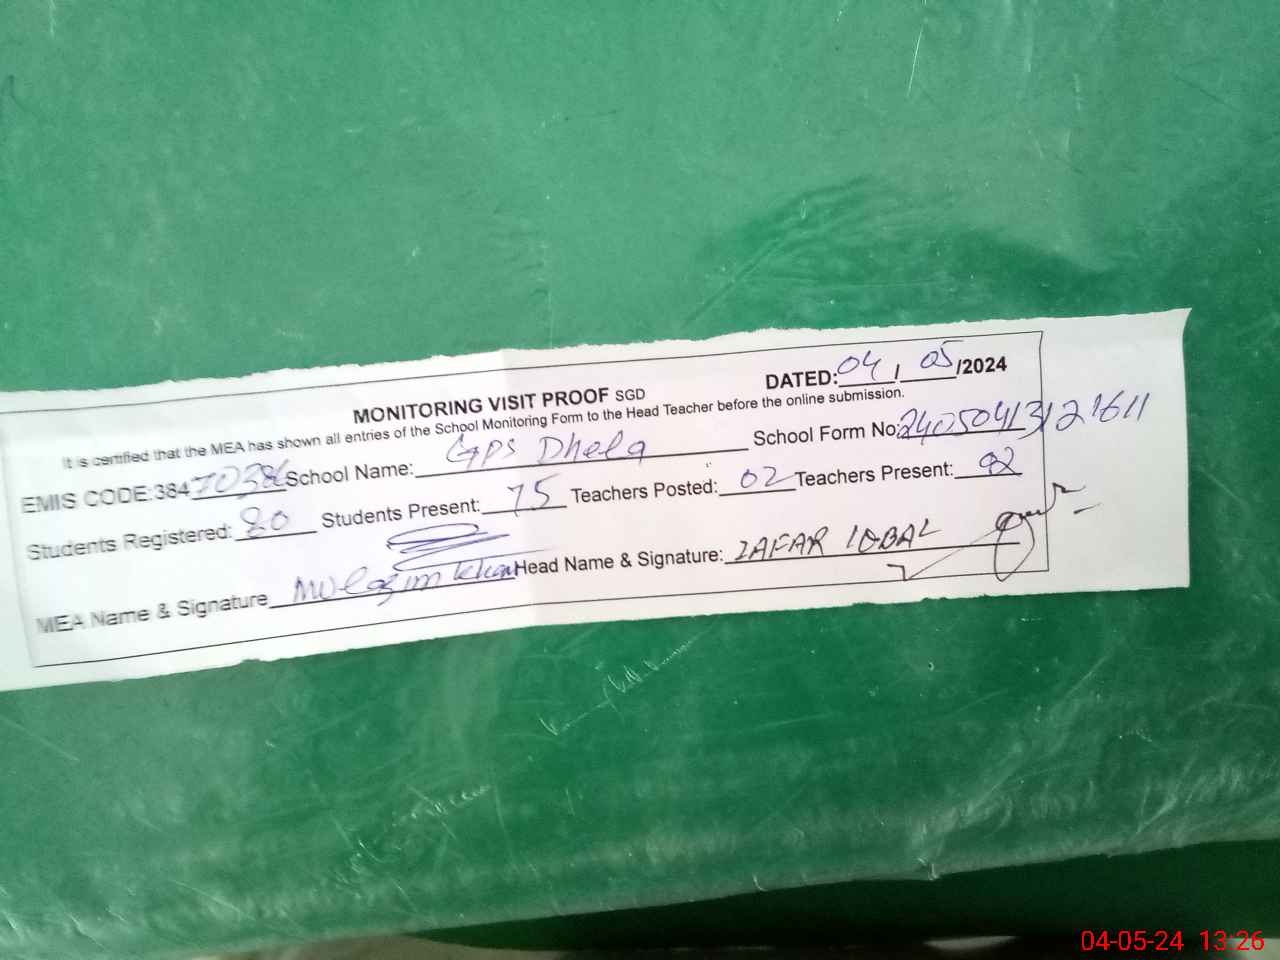 MONITORING VISIT PROOF SGD DATED: 04 / 05 /2024
It is certified that the MEA has shown all entries of the School Monitoring Form to the Head Teacher before the online submission.
EMIS CODE:38470386 School Name: GPS Dhela School Form No: 24050413121611
Students Registered: 80 Students Present: 75 Teachers Posted: 02 Teachers Present: 02
MEA Name & Signature Mulazim Khan Head Name & Signature: ZAFAR IQBAL
04-05-24 13:26